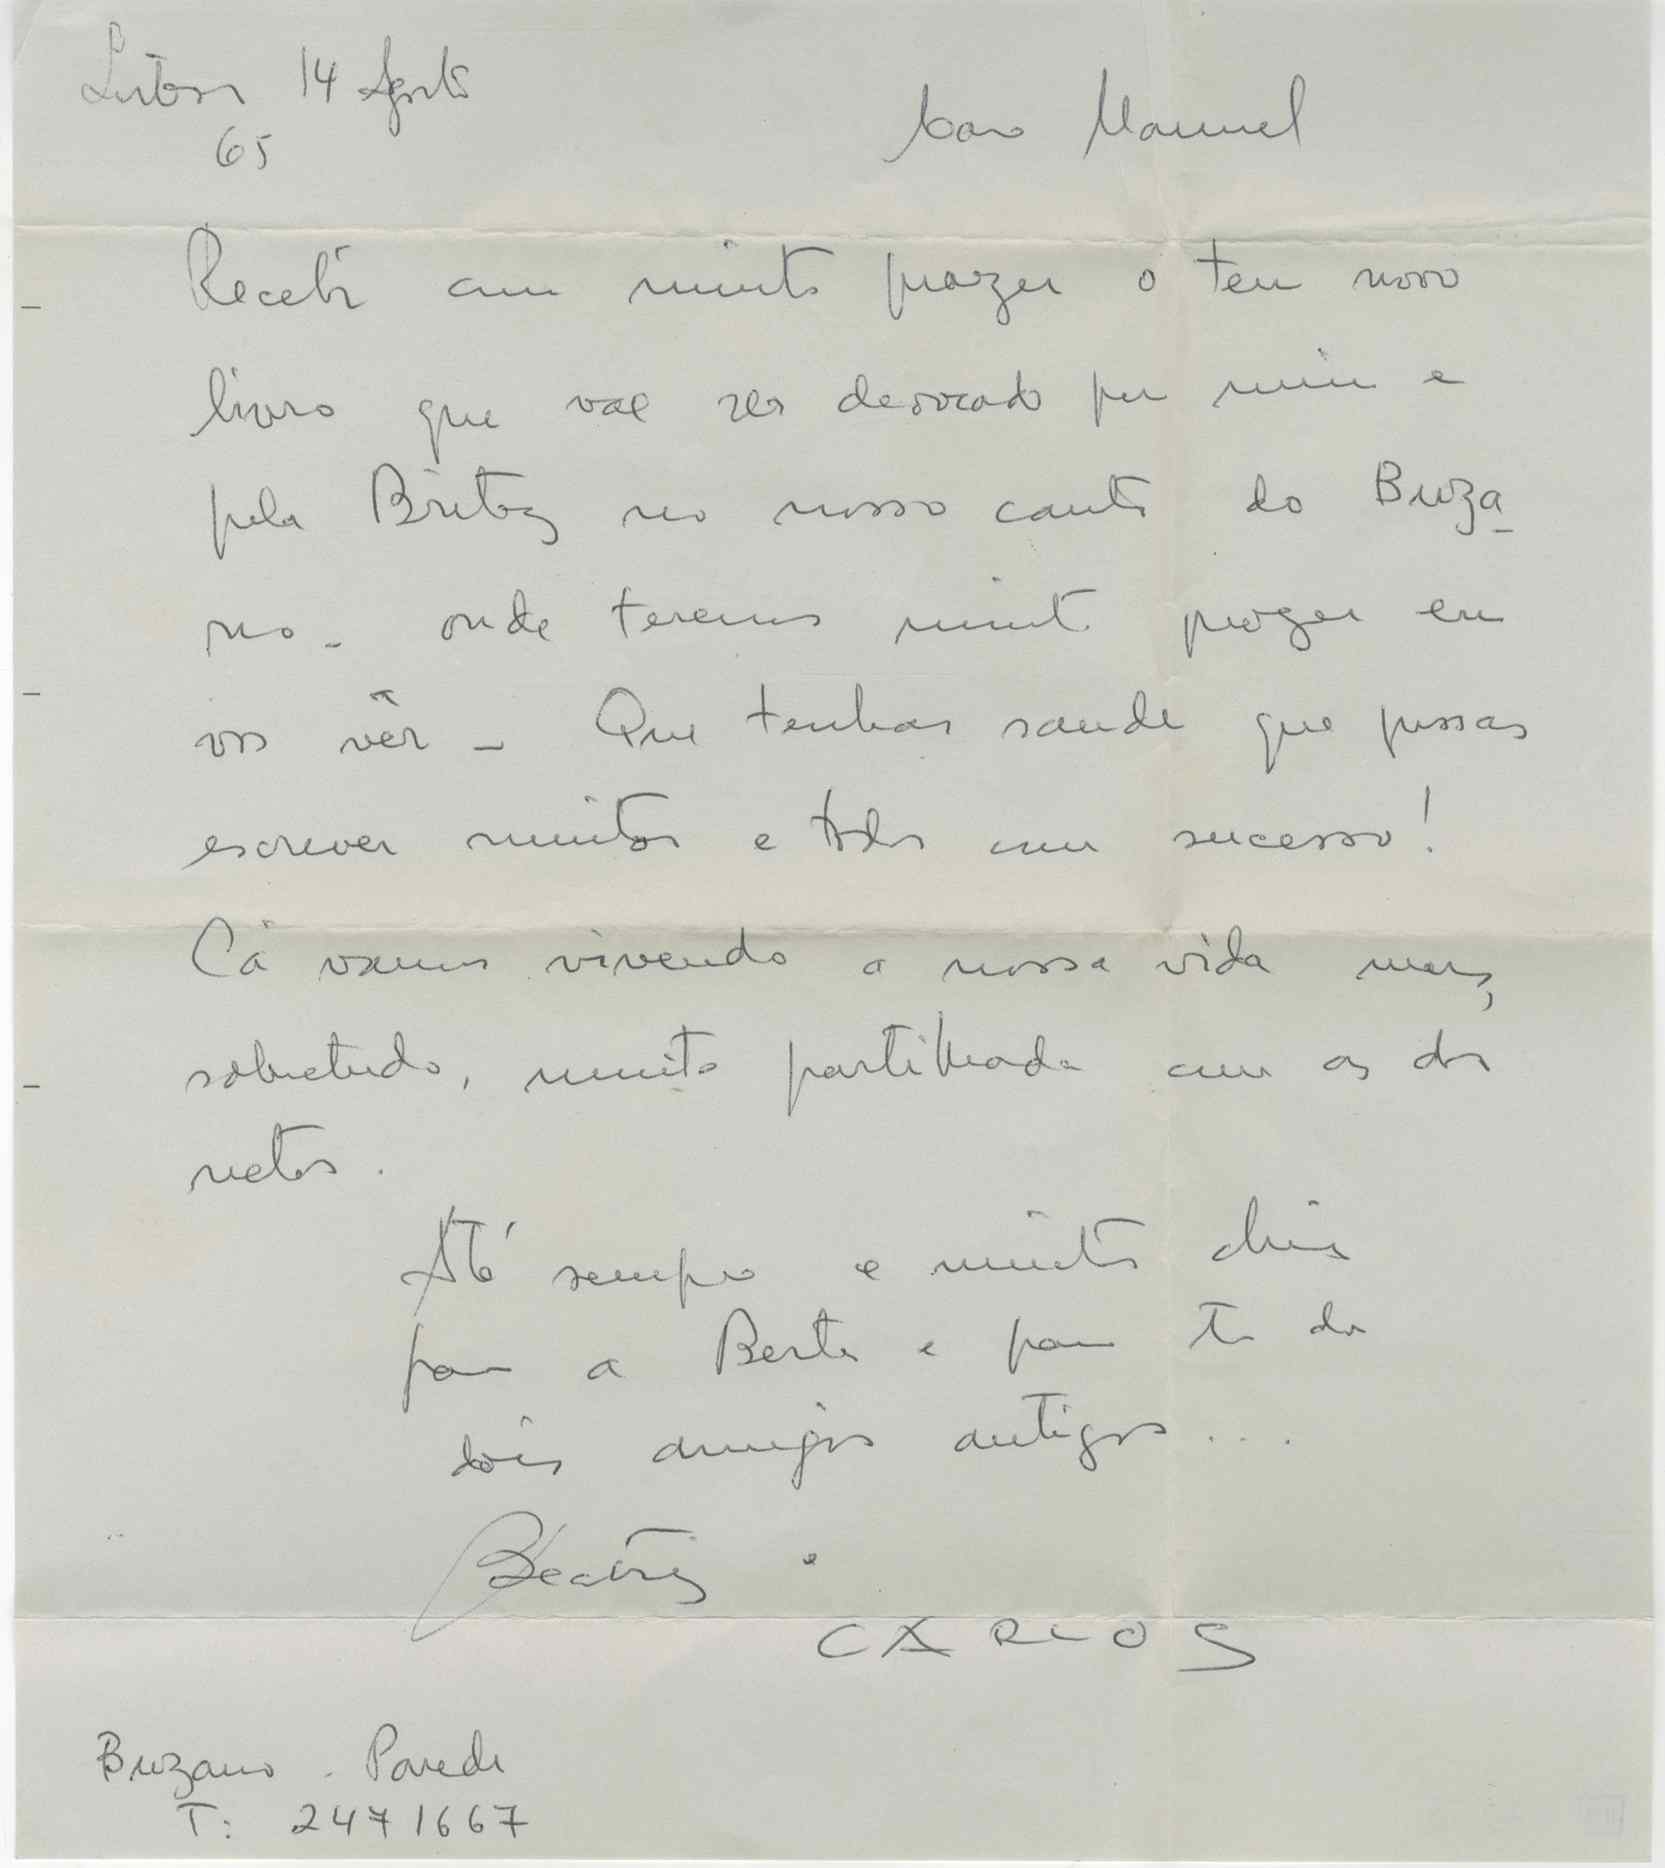 Lisboa 14 Agosto
65
Caro Manuel
Recebi com muito prazer o teu novo
livro que vae ser devorado por mim e
pela Brites no nosso canto do Buza-
no - onde teremos muito prazer em
vos vêr - Que tenhas saude que possas
escrever muitos e todos com sucesso!
Cá vamos vivendo a nossa vida mas,
sobretudo, muito partilhada com as dos
netos.
Até sempre e muitos
para a Berta e para ti dos
dois amigos antigos...
Beatriz e
CARLOS
Buzano - Parede
T: 2471667